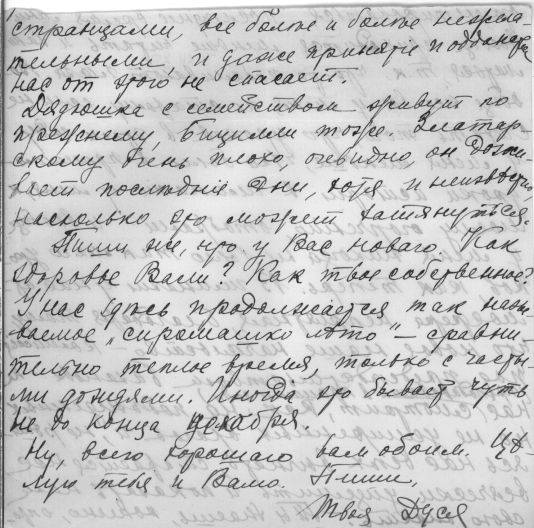 странцами, все болѣе и болѣе нежела-
тельными, и даже принятіе подданства
нас от этого не спасает.
Дядюшка с семейством живут по
прежнему, Бицилли тоже. Златар-
скому очень плохо, очевидно, он дожи-
вает послѣднiе дни, хотя и неизвѣстно,
насколько это может затянуться.
Пиши же, что у Вас новаго. Как
здоровье Вали? Как твое собственное?
У нас здѣсь продолжается так назы-
ваемое „сиромашко лѣто" – сравни-
тельно теплое время, только с часты-
ми дождями. Иногда это бывает чуть
не до конца декабря.
Ну, всего хорошаго вам обоим. Цѣ-
лую тебя и Валю. Пиши.
Твоя Дуся